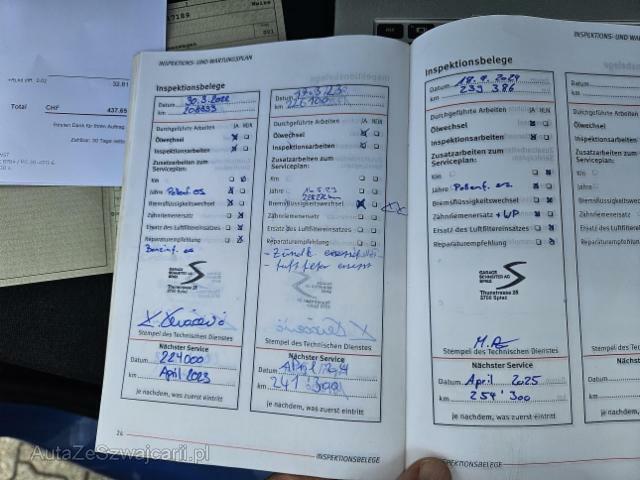 Total CHF 437.65
Vielen Dank für Ihren Auftrag
Zahlbar: 30 Tage netto
INSPEKTIONS- UND WARTUNGSPLAN
Inspektionsbelege
Datum 30.3.2022
km
Durchgeführte Arbeiten JA NEIN
Ölwechsel
Inspektionsarbeiten
Zusatzarbeiten zum
Serviceplan:
Km
Jahre Pollenf. ers.
Bremsflüssigkeitswechsel
Zahnriemenersatz
Ersatz des Luftfiltereinsatzes
Reparaturempfehlung
Benzinf. ers.
GARAGE
SPIEZ
Thunstrasse 25
3700 Spiez
Stempel des Technischen Dienstes
Nächster Service
Datum 224000
km April 2023
je nachdem, was zuerst eintritt
24
Datum 17.3.23
km 226100
Durchgeführte Arbeiten JA NEIN
Ölwechsel
Inspektionsarbeiten
Zusatzarbeiten zum
Serviceplan:
Km
Jahre
Bremsflüssigkeitswechsel
Zahnriemenersatz
Ersatz des Luftfiltereinsatzes
Reparaturempfehlung
- Luftfilter ersetzt
Stempel des Technischen Dienstes
Nächster Service
Datum
km 241'300
je nachdem, was zuerst eintritt
INSPEKTIONSBELEGE
INSPEKTIONS- UND WAR
Inspektionsbelege
Datum 18.4.2024
km 239 386
Durchgeführte Arbeiten JA NEIN
Ölwechsel
Inspektionsarbeiten
Zusatzarbeiten zum
Serviceplan:
Km
Jahre Pollenf. ers.
Bremsflüssigkeitswechsel
Zahnriemenersatz + WP
Ersatz des Luftfiltereinsatzes
Reparaturempfehlung
GARAGE
SPIEZ
Thunstrasse 25
3700 Spiez
Stempel des Technischen Dienstes
Nächster Service
Datum April 2025
km 254'300
je nachdem, was zuerst eintritt
INSPEKTIONSBELEGE
AutaZeSzwajcarii.pl